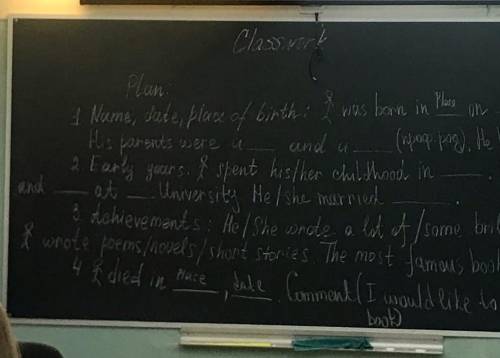 Classwork
Plan:
1 Name, date, place of birth: X was born in place ___ on
His parents were a ___ and a ___ (проф. род). He
2. Early years. X spent his/her childhood in ___.
and ___ at ___ University He/she married ___.
3 Achievements: He/She wrote a lot of/some bril
X wrote poems/novels/short stories. The most famous book
4 X died in place ___, date ___. Comment (I would like to
book)